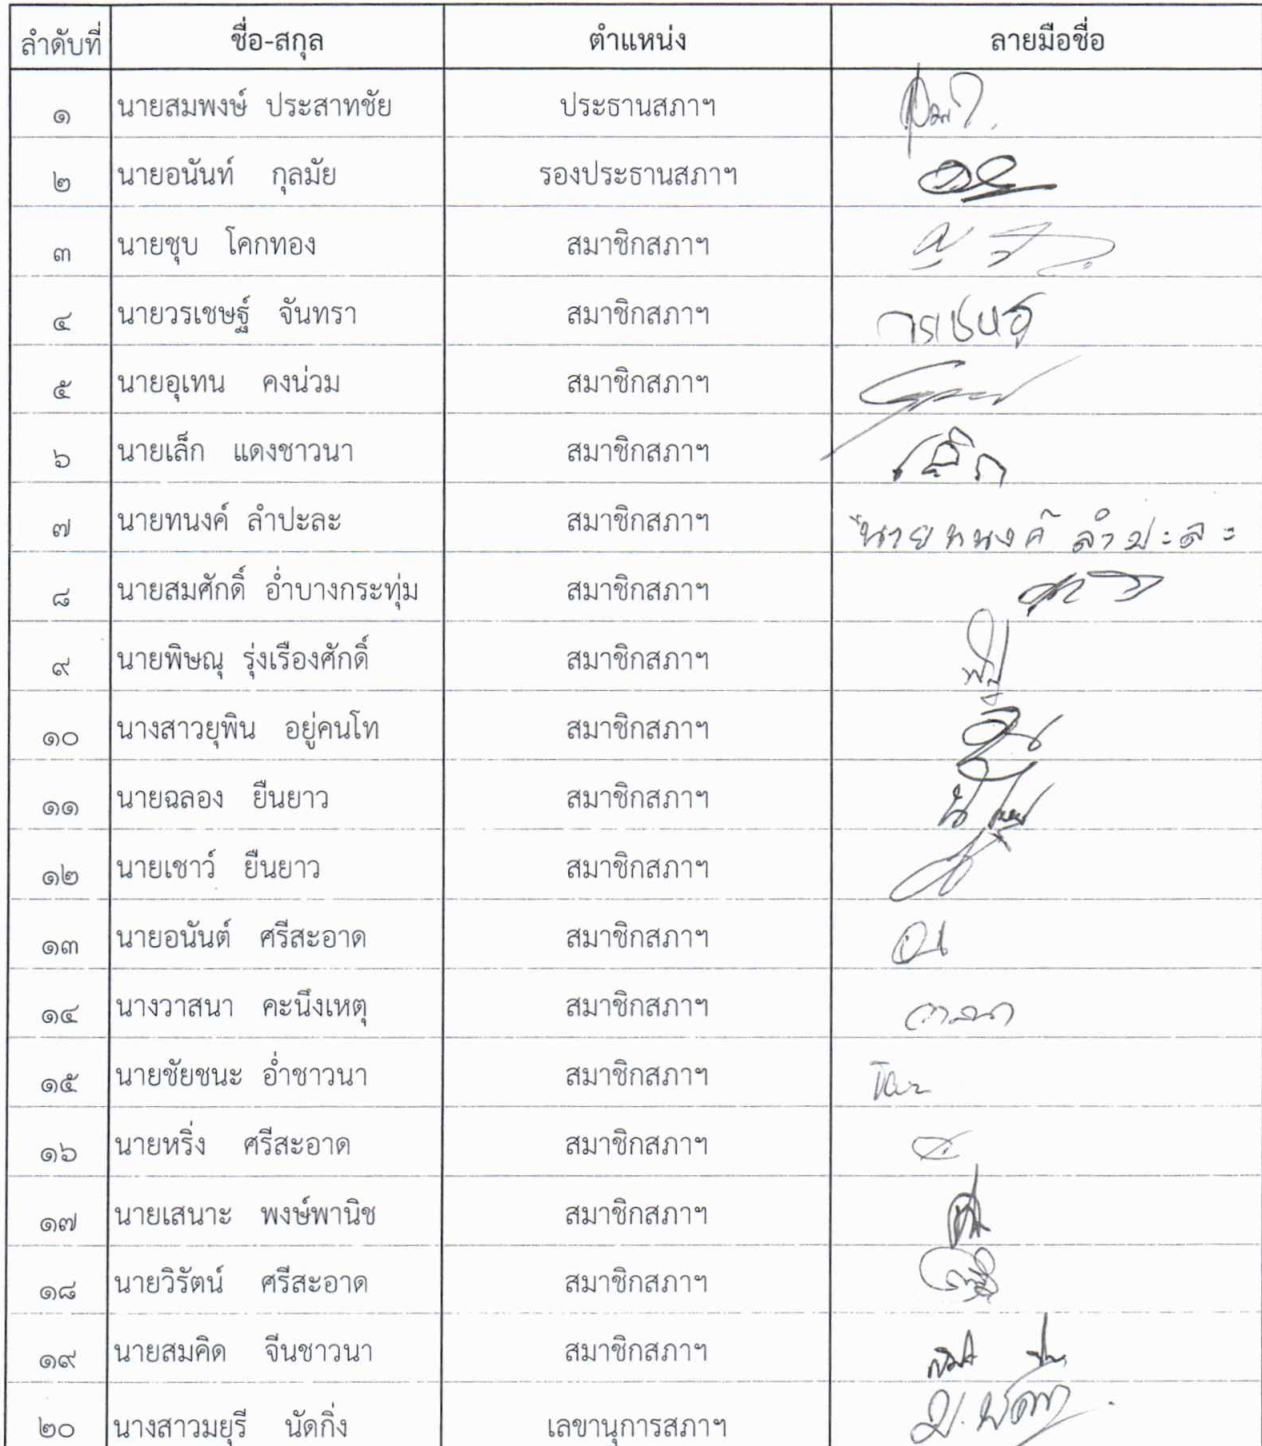 ลำดับที่ ชื่อ-สกุล ตำแหน่ง ลายมือชื่อ
๑ นายสมพงษ์ ประสาทชัย ประธานสภาฯ
๒ นายอนันท์ กุลมัย รองประธานสภาฯ
๓ นายชุบ โคกทอง สมาชิกสภาฯ
๔ นายวรเชษฐ์ จันทรา สมาชิกสภาฯ วรเชษฐ์
๕ นายอุเทน คงน่วม สมาชิกสภาฯ
๖ นายเล็ก แดงชาวนา สมาชิกสภาฯ เล็ก
๗ นายทนงค์ ลำปะละ สมาชิกสภาฯ นายทนงค์ ลำปะละ
๘ นายสมศักดิ์ อ่ำบางกระทุ่ม สมาชิกสภาฯ
๙ นายพิษณุ รุ่งเรืองศักดิ์ สมาชิกสภาฯ
๑๐ นางสาวยุพิน อยู่คนโท สมาชิกสภาฯ
๑๑ นายฉลอง ยืนยาว สมาชิกสภาฯ
๑๒ นายเชาว์ ยืนยาว สมาชิกสภาฯ
๑๓ นายอนันต์ ศรีสะอาด สมาชิกสภาฯ
๑๔ นางวาสนา คะนึงเหตุ สมาชิกสภาฯ วาสนา
๑๕ นายชัยชนะ อ่ำชาวนา สมาชิกสภาฯ
๑๖ นายหริ่ง ศรีสะอาด สมาชิกสภาฯ
๑๗ นายเสนาะ พงษ์พานิช สมาชิกสภาฯ
๑๘ นายวิรัตน์ ศรีสะอาด สมาชิกสภาฯ
๑๙ นายสมคิด จีนชาวนา สมาชิกสภาฯ
๒๐ นางสาวมยุรี นัดกิ่ง เลขานุการสภาฯ